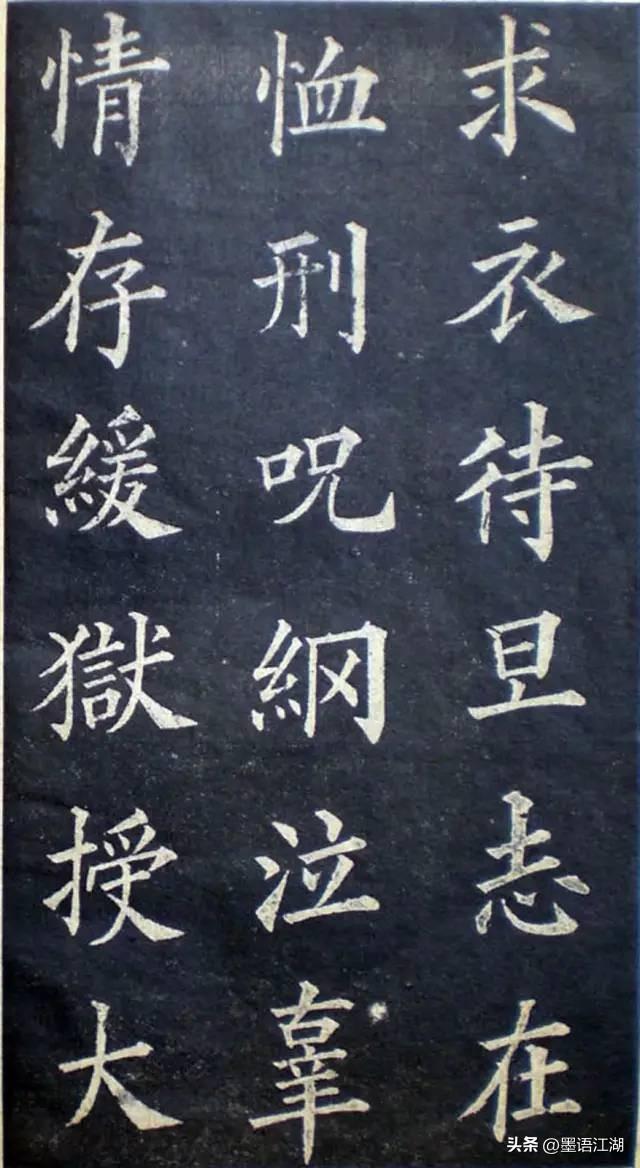 求衣待旦志在
恤刑呪綱泣辜
情存緩獄授大
头条 @墨语江湖